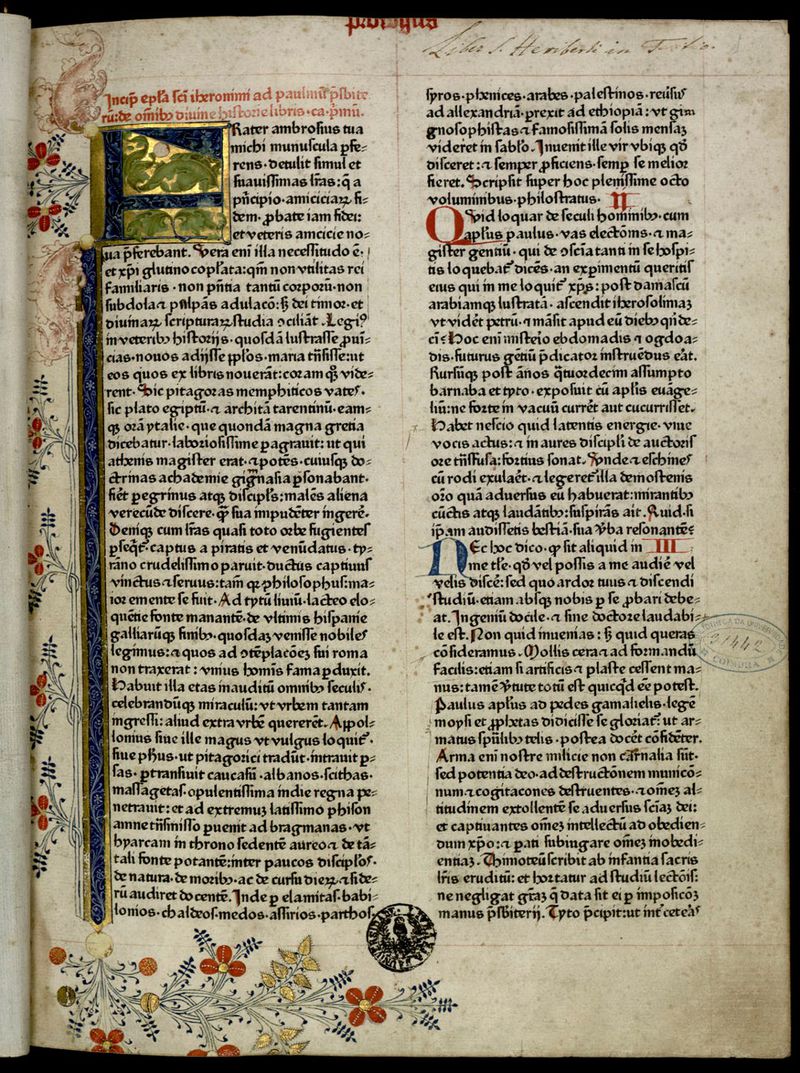 prologus
Liber S. Heriberti in Tuitio.
Incip̄ ep̄la sc̄i iheronimi ad paulinū p̄sbite
rū: de om̄ibꝰ diuine historie libris · ca · p̄mū.
FRater ambrosius tua
michi munuscula ꝑfe⸗
rens · detulit simul et
suauissimas l̄ras: q̄ a
pn̄cipio · amiciciaꝝ fi⸗
dem · ꝓbate iam fidei:
et veteris amicicie no⸗
ua p̄ferebant. Vera eni illa necessitudo ē ·
et xp̄i glutino copl̄ata: qm̄ non vtilitas rei
familiaris · non pn̄tia tantū corporū · non
subdola ⁊ palpās adulacō: sꝫ dei timor · et
diuinaꝝ scripturaꝝ studia ꝯciliāt. Legiꝰ
in veteribꝰ historijs · quosdā lustrasse ꝓuī⸗
cias · nouos adijsse ppl̄os · maria trn̄sisse: ut
eos quos ex libris nouerāt: coram qꝫ vide⸗
rent. Sic pitagoras memphiticos vates ·
sic plato egiptū · ⁊ architā tarentinū · eam⸗
qꝫ orā ytalie · que quondā magna gretia
dicebatur · laboriosissime ꝑagrauit: ut qui
athenis magister erat · ⁊ potēs · cuiusqꝫ do⸗
ctrinas achademie gignasia ꝑsonabant ·
fiēt peregrinus atqꝫ discipl̄s: malēs aliena
verecūde discere · qꝫ sua impudēter ingerē.
Deniqꝫ cum l̄ras quasi toto orbe fugientes
ꝑseqt̄ · captus a piratis et venūdatus · ty⸗
rāno crudelissimo paruit · ductus captiuus
vinctus ⁊ seruus: tam̄ qꝛ philosophus: ma⸗
ior emente se fuit. Ad tytū liuiū · lacteo elo⸗
quētie fonte manantē · de vltimis hispanie
galliarūqꝫ finibꝰ · quosdaꝫ venisse nobiles
legimus: ⁊ quos ad ꝯtēplacōeꝫ sui roma
non traxerat: vnius hoīs fama ꝑduxit.
Habuit illa etas inauditū omnibꝰ seculis ·
celebrandūqꝫ miraculū: vt vrbem tantam
ingressi: aliud extra vrbē quererēt. Appol⸗
lonius siue ille magus vt vulgus loquit̄ ·
siue ph̄us · ut pitagorici tradūt · intrauit ꝑ⸗
sas · ꝑtransiuit caucasū · albanos · scithas ·
massagetas · opulentissima indie regna pe⸗
netrauit: et ad extremuꝫ latissimo phison
amne trn̄smisso ꝑuenit ad bragmanas · vt
hyarcam in throno sedentē aureo ⁊ de tā⸗
tali fonte potantē: inter paucos discipl̄os ·
de natura · de moribꝰ · ac de cursu dieꝝ ⁊ side⸗
rū audiret docentē. Inde ꝑ elamitas · babi⸗
lonios · chaldeos · medos · assirios · parthos ·
syros · phenices · arabes · palestinos · reūsus
ad allexandriā · ꝑrexit ad ethiopiā: vt gim
gnosophistas ⁊ famosissimā solis mensaꝫ
videret in sablo. Inuenit ille vir vbiqꝫ qd̄
disceret: ⁊ semper ꝓficiens · semꝑ se melior
fieret. Scripsit super hoc plenissime octo
voluminibus · philostratus. II
QVid loquar de seculi hominibꝰ · cum
apl̄us paulus · vas electōnis · ⁊ ma⸗
gister gentiū · qui de ꝯsciā tanti in se hospi⸗
tis loquebat̄ dicēs · an expimentū queritis
eius qui in me loquit̄ xp̄s: post damascū
arabiamqꝫ lustratā · ascendit iherosolimaꝫ
vt vidēt petrū · ⁊ māsit apud eū diebꝰ qn̄de⸗
cī: Hoc eni misterio ebdomadis ⁊ ogdoa⸗
dis · futurus gētiū p̄dicator instruēdus eāt.
Rursūqꝫ post ānos q̄tuordecim assumpto
barnaba et tyto · exposuit cū apl̄is euāge⸗
liū: ne forte in vacuū currēt aut cucurrisset.
Habet nescio quid latentis energie · viue
vocis actus: ⁊ in aures discipli de auctoris
ore trn̄sfusa: fortius sonat. Vnde ⁊ eschines
cū rodi exulaēt · ⁊ legeret̄ illa demostenis
or̄o quā aduersus eū habuerat: mirantibꝰ
cūctis atqꝫ laudātibꝰ: suspirās ait. Quid · si
ip̄am audissetis bestiā · sua v̄ba resonantē
NEc hoc dico · qꝫ sit aliquid in III
me tl̄e · qd̄ vel possis a me audiē vel
velis discē: sed quo ardor tuus ⁊ discendi
studiū · etiam absqꝫ nobis ꝑ se ꝓbari debe⸗
at. Ingeniū docile · ⁊ sine doctore laudabi⸗
le est. Non quid inuenias: sꝫ quid queras
cōsideramus. Mollis cera ⁊ ad formandū
facilis: etiam si artificis ⁊ plaste cessent ma⸗
nus: tamē v̄tute totū est quicqd̄ eē potest.
Paulus apl̄us ad pedes gamalielis · legē
moysi et ꝓphetas didicisse se gloriat̄: ut ar⸗
matus spūalibꝰ telis · postea docēt cōfidēter.
Arma eni nostre milicie non carnalia sūt ·
sed potentia deo · ad destructōnem municō⸗
num ⁊ cogitacones destruentes · ⁊ omeꝫ al⸗
titudinem extollentē se aduersus sciaꝫ dei:
et captiuantes omeꝫ intellectū ad obedien⸗
dum xp̄o: ⁊ ꝑati subiugare omeꝫ inobedi⸗
entiaꝫ. Thimoteū scribit ab infantia sacris
l̄ris eruditū: et hortatur ad studiū lectōis:
ne negligat gr̄aꝫ q̄ data sit ei ꝑ imposicōꝫ
manus p̄sbiterij. Tyto p̄cipit: ut int̄ ceteras
21442
COIMBRA